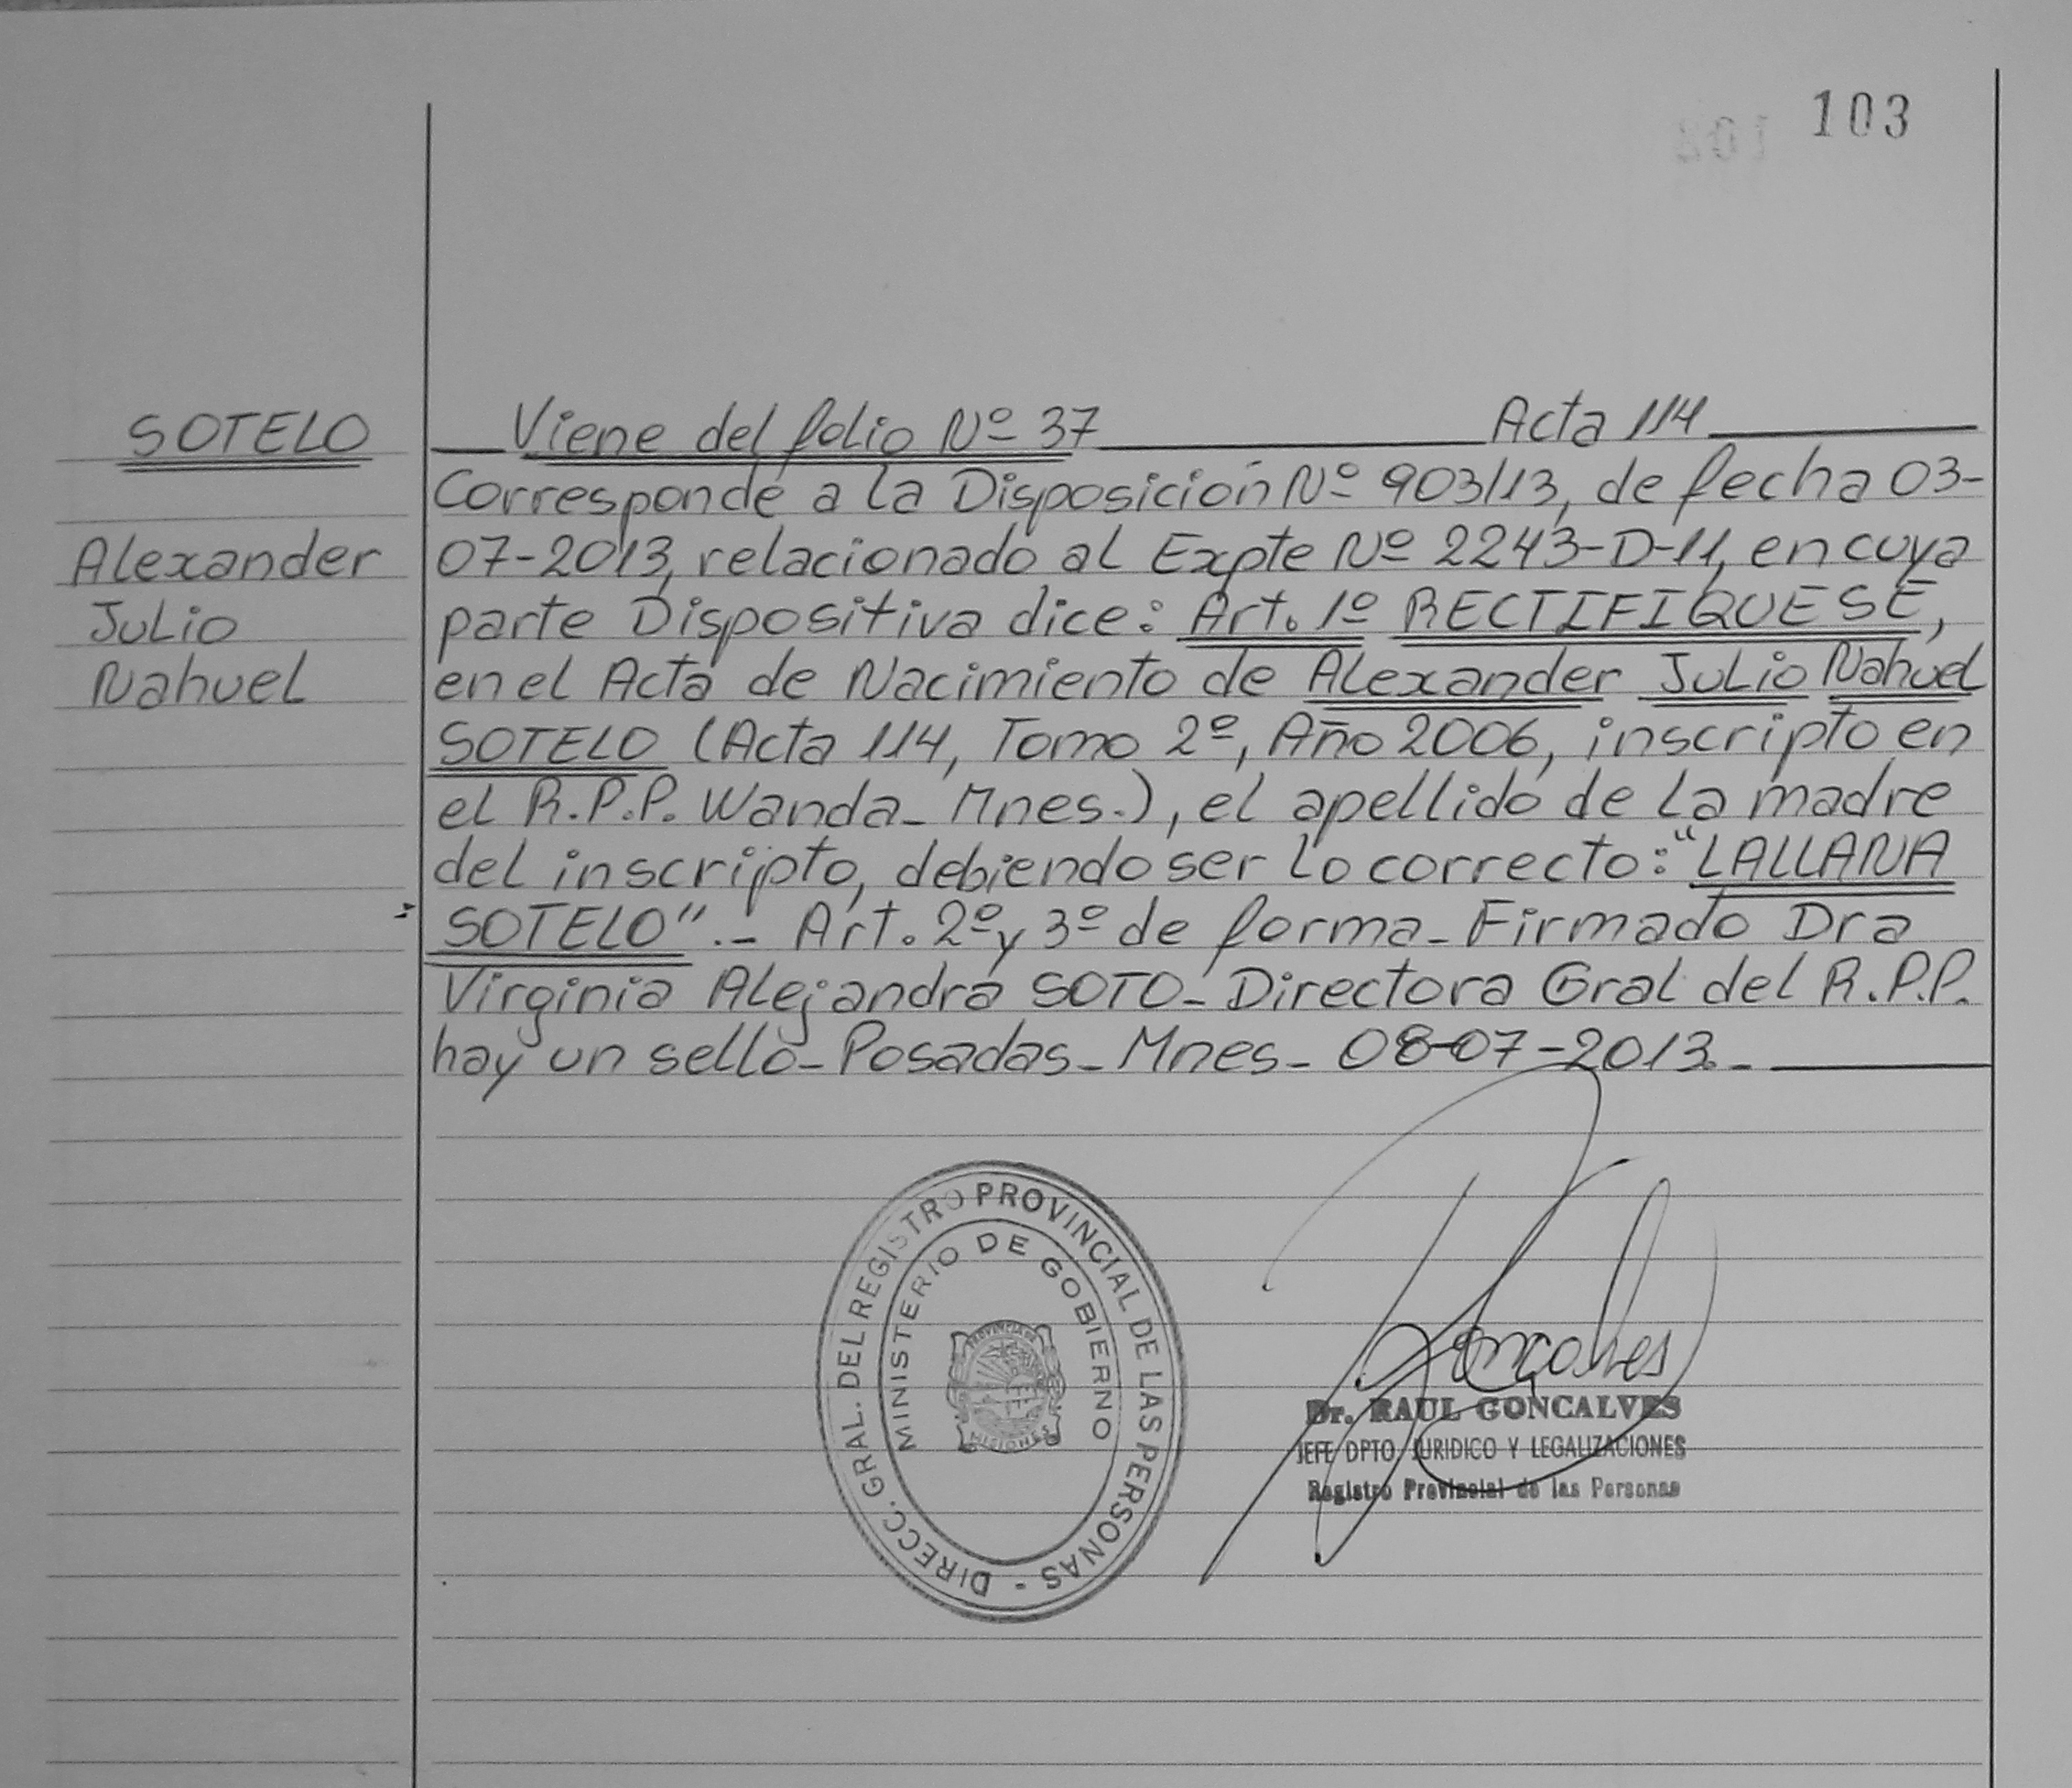 103
SOTELO
Alexander
Julio
Nahuel
Viene del folio Nº 37 Acta 114
Corresponde a la Disposición Nº 903/13, de fecha 03-
07-2013, relacionado al Expte Nº 2243-D-11, en cuya
parte Dispositiva dice: Art. 1º RECTIFIQUESE,
en el Acta de Nacimiento de Alexander Julio Nahuel
SOTELO (Acta 114, Tomo 2º, Año 2006, inscripto en
el R.P.P. Wanda_ Mnes.), el apellido de la madre
del inscripto, debiendo ser lo correcto: "LALLANA
SOTELO".- Art. 2º y 3º de forma_ Firmado Dra
Virginia Alejandra SOTO_ Directora Gral del R.P.P.
hay un sello_ Posadas_ Mnes_ 08-07-2013._
DIRECC. GRAL. DEL REGISTRO PROVINCIAL DE LAS PERSONAS -
MINISTERIO DE GOBIERNO
PROVINCIA DE
MISIONES
Goncalves
Dr. RAUL GONCALVES
JEFE DPTO JURIDICO Y LEGALIZACIONES
Registro Provincial de las Personas